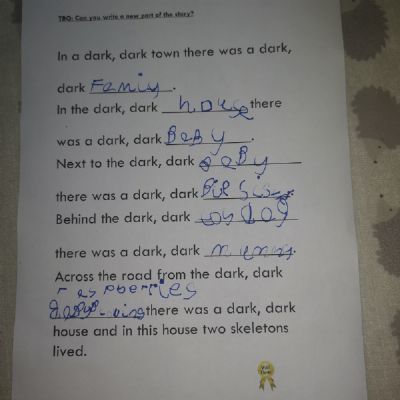 TBQ: Can you write a new part of the story?
In a dark, dark town there was a dark,
dark Femiy.
In the dark, dark house there
was a dark, dark BaBy.
Next to the dark, dark BaBy
there was a dark, dark
Behind the dark, dark
there was a dark, dark
Across the road from the dark, dark
resperries
there was a dark, dark
house and in this house two skeletons
lived.